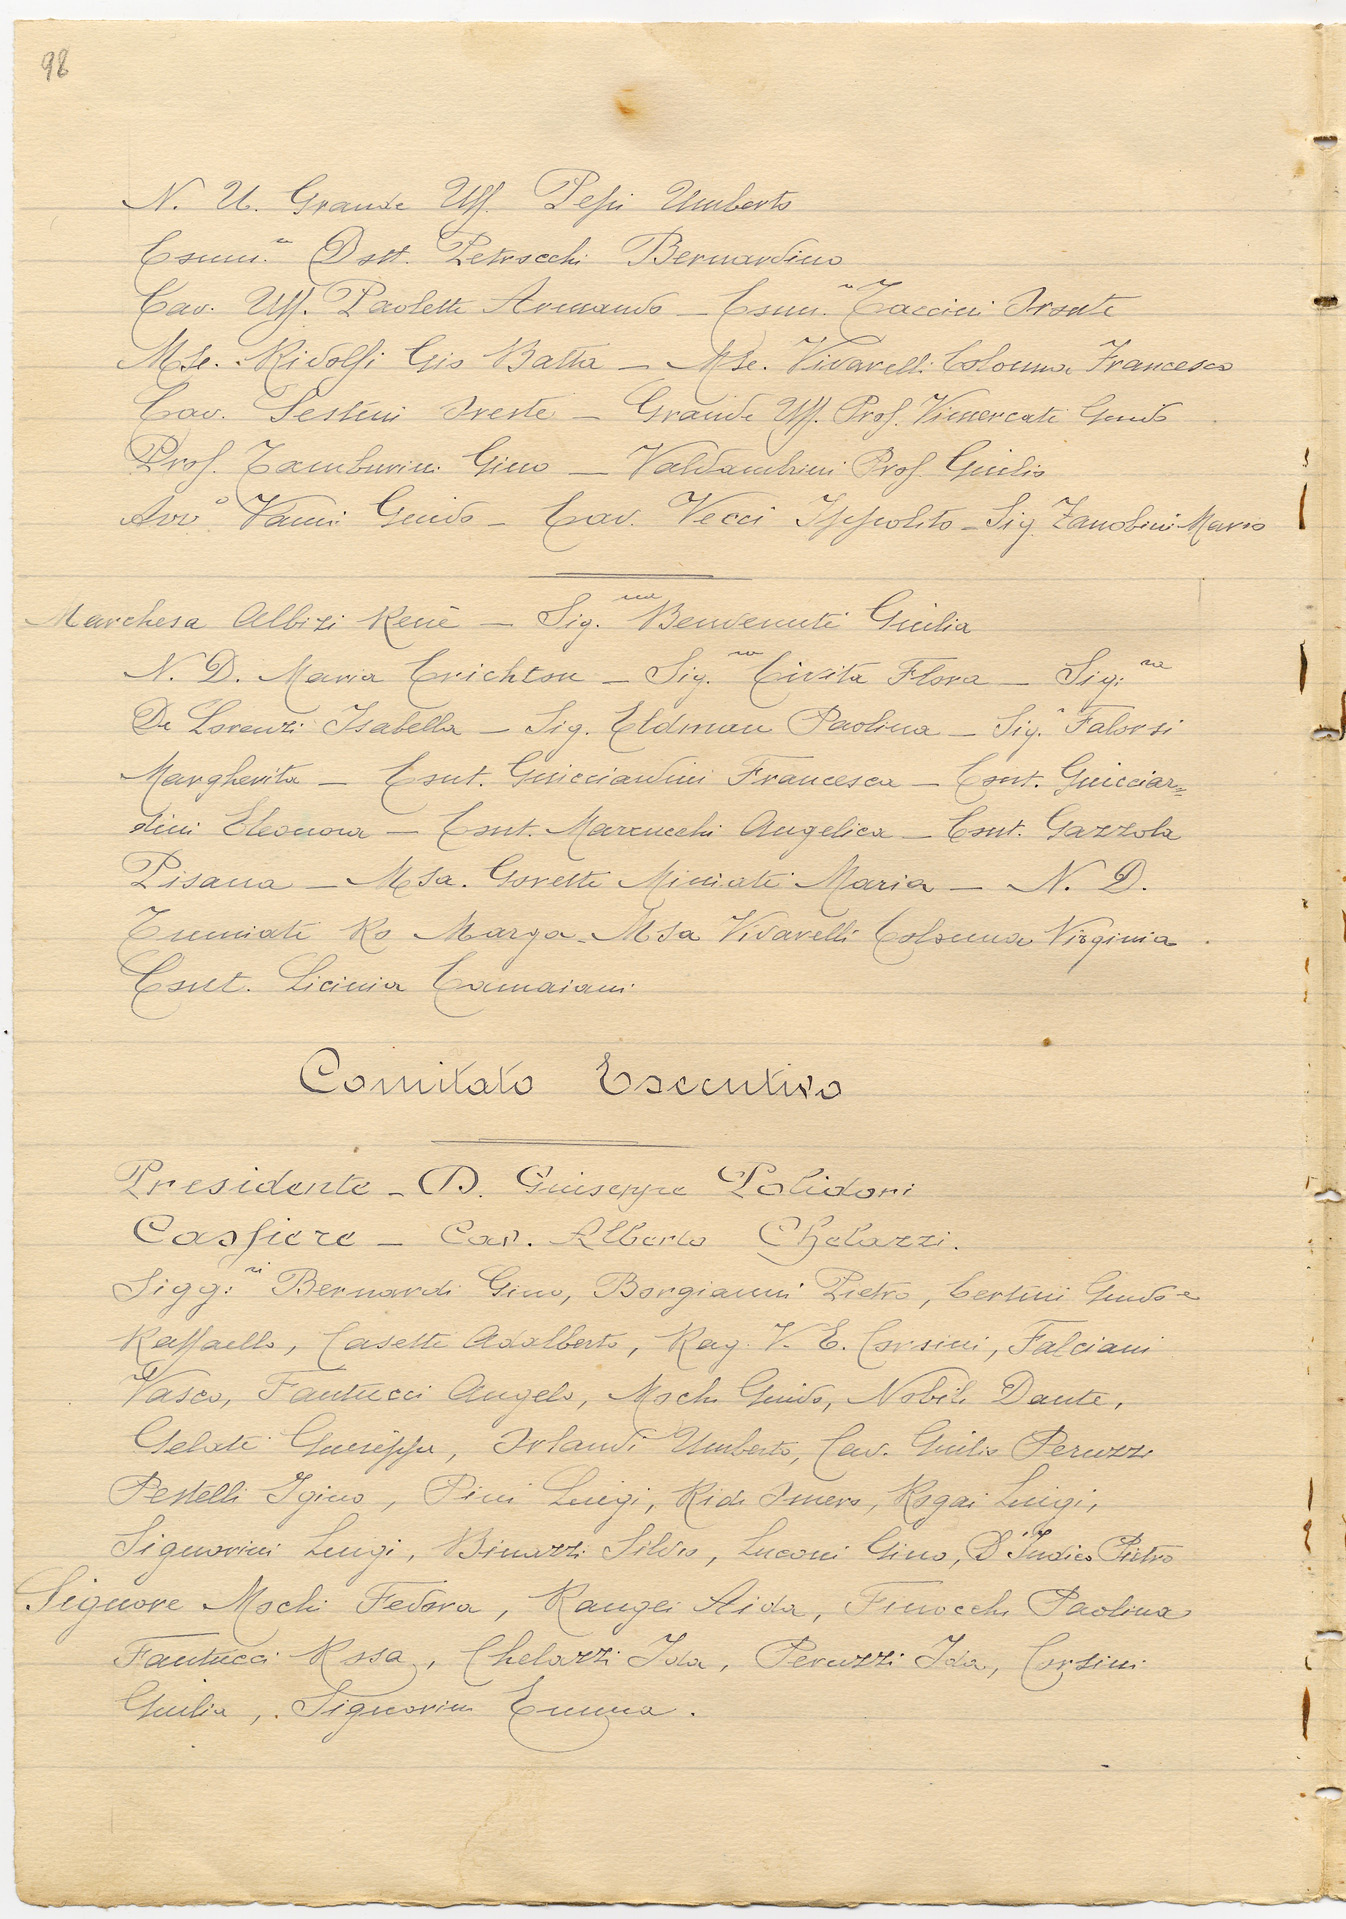 98
N. U. Grande Uff. Pepi Umberto
Comm.e Dott. Petrocchi Bernardino
Cav. Uff. Paoletti Armando – Comm.e Taccini Oronte
Mse. Ridolfi Gio Batta – Mse. Vivarelli Colonna Francesco
Cav. Sestini Oreste – Grande Uff. Prof. Vimercati Guido
Prof. Tamburini Gino – Valdambrini Prof. Giulio
Avvo Vanni Guido – Cav. Vecci Ippolito – Sig. Zanobini Mario
Marchesa Albizi René – Sig.na Benvenuti Giulia
N. D. Maria Crichton – Sig.ra Civita Flora – Sig:ra
De Lorenzi Isabella – Sig. Eldman Paolina – Sig.a Falorsi
Margherita – Cont. Guicciardini Francesca – Cont. Guicciar=
dini Eleonora – Cont. Marcucchi Angelica – Cont. Gazzola
Pisana – MSa. Goretti Miniati Maria – N. D.
Tumiati Ro Marga – MSa Vivarelli Colonna Virginia
Cont. Licinia Camaiani
Comitato Esecutivo
Presidente – D. Giuseppe Polidori
Cassiere – Cav. Alberto Chelazzi.
Sigg:ri Bernardi Gino, Borgianni Pietro, Certini Guido e
Raffaello, Casetti Adalberto, Rag. V. E. Corsini, Falciani
Vasco, Fantucci Angelo, Mochi Guido, Nobili Dante,
Gelati Giuseppe, Orlandi Umberto, Cav. Giulio Peruzzi
Pestelli Igino, Pini Luigi, Ridi Omero, Rogai Luigi,
Signorini Luigi, Binazzi Silvio, Luconi Gino, D'Indico Pietro
Signore Mochi Fedora, Rangei Aida, Finocchi Paolina
Fantucci Rosa, Chelazzi Ida, Peruzzi Ida, Corsini
Giulia, Signorini Emma.